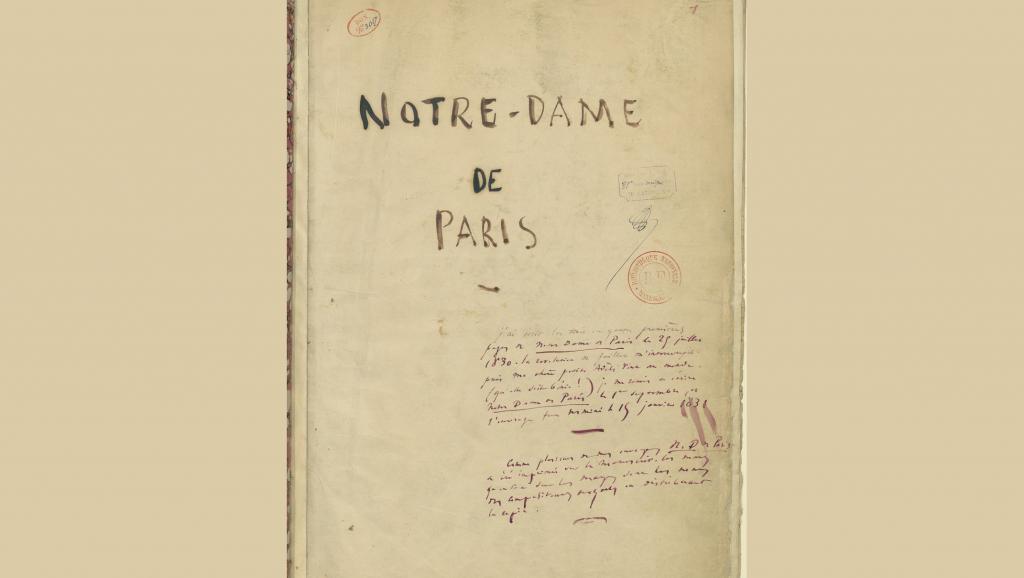 NOTRE-DAME
DE
PARIS
J'ai écrit les trois ou quatre premières
pages de Notre Dame de Paris le 25 juillet
1830. la révolution de juillet m'interrompit.
puis ma chère petite Adèle vint au monde.
(qu'elle soit bénie!) je me remis à écrire
Notre Dame de Paris le 1er septembre, et
l'ouvrage fut terminé le 15 janvier 1831
Comme plusieurs de mes ouvrages N. D. de Paris
a été imprimé sur le manuscrit. les noms
qu'on voit sur les marges sont les noms
des compositeurs auxquels on distribuait
la copie.